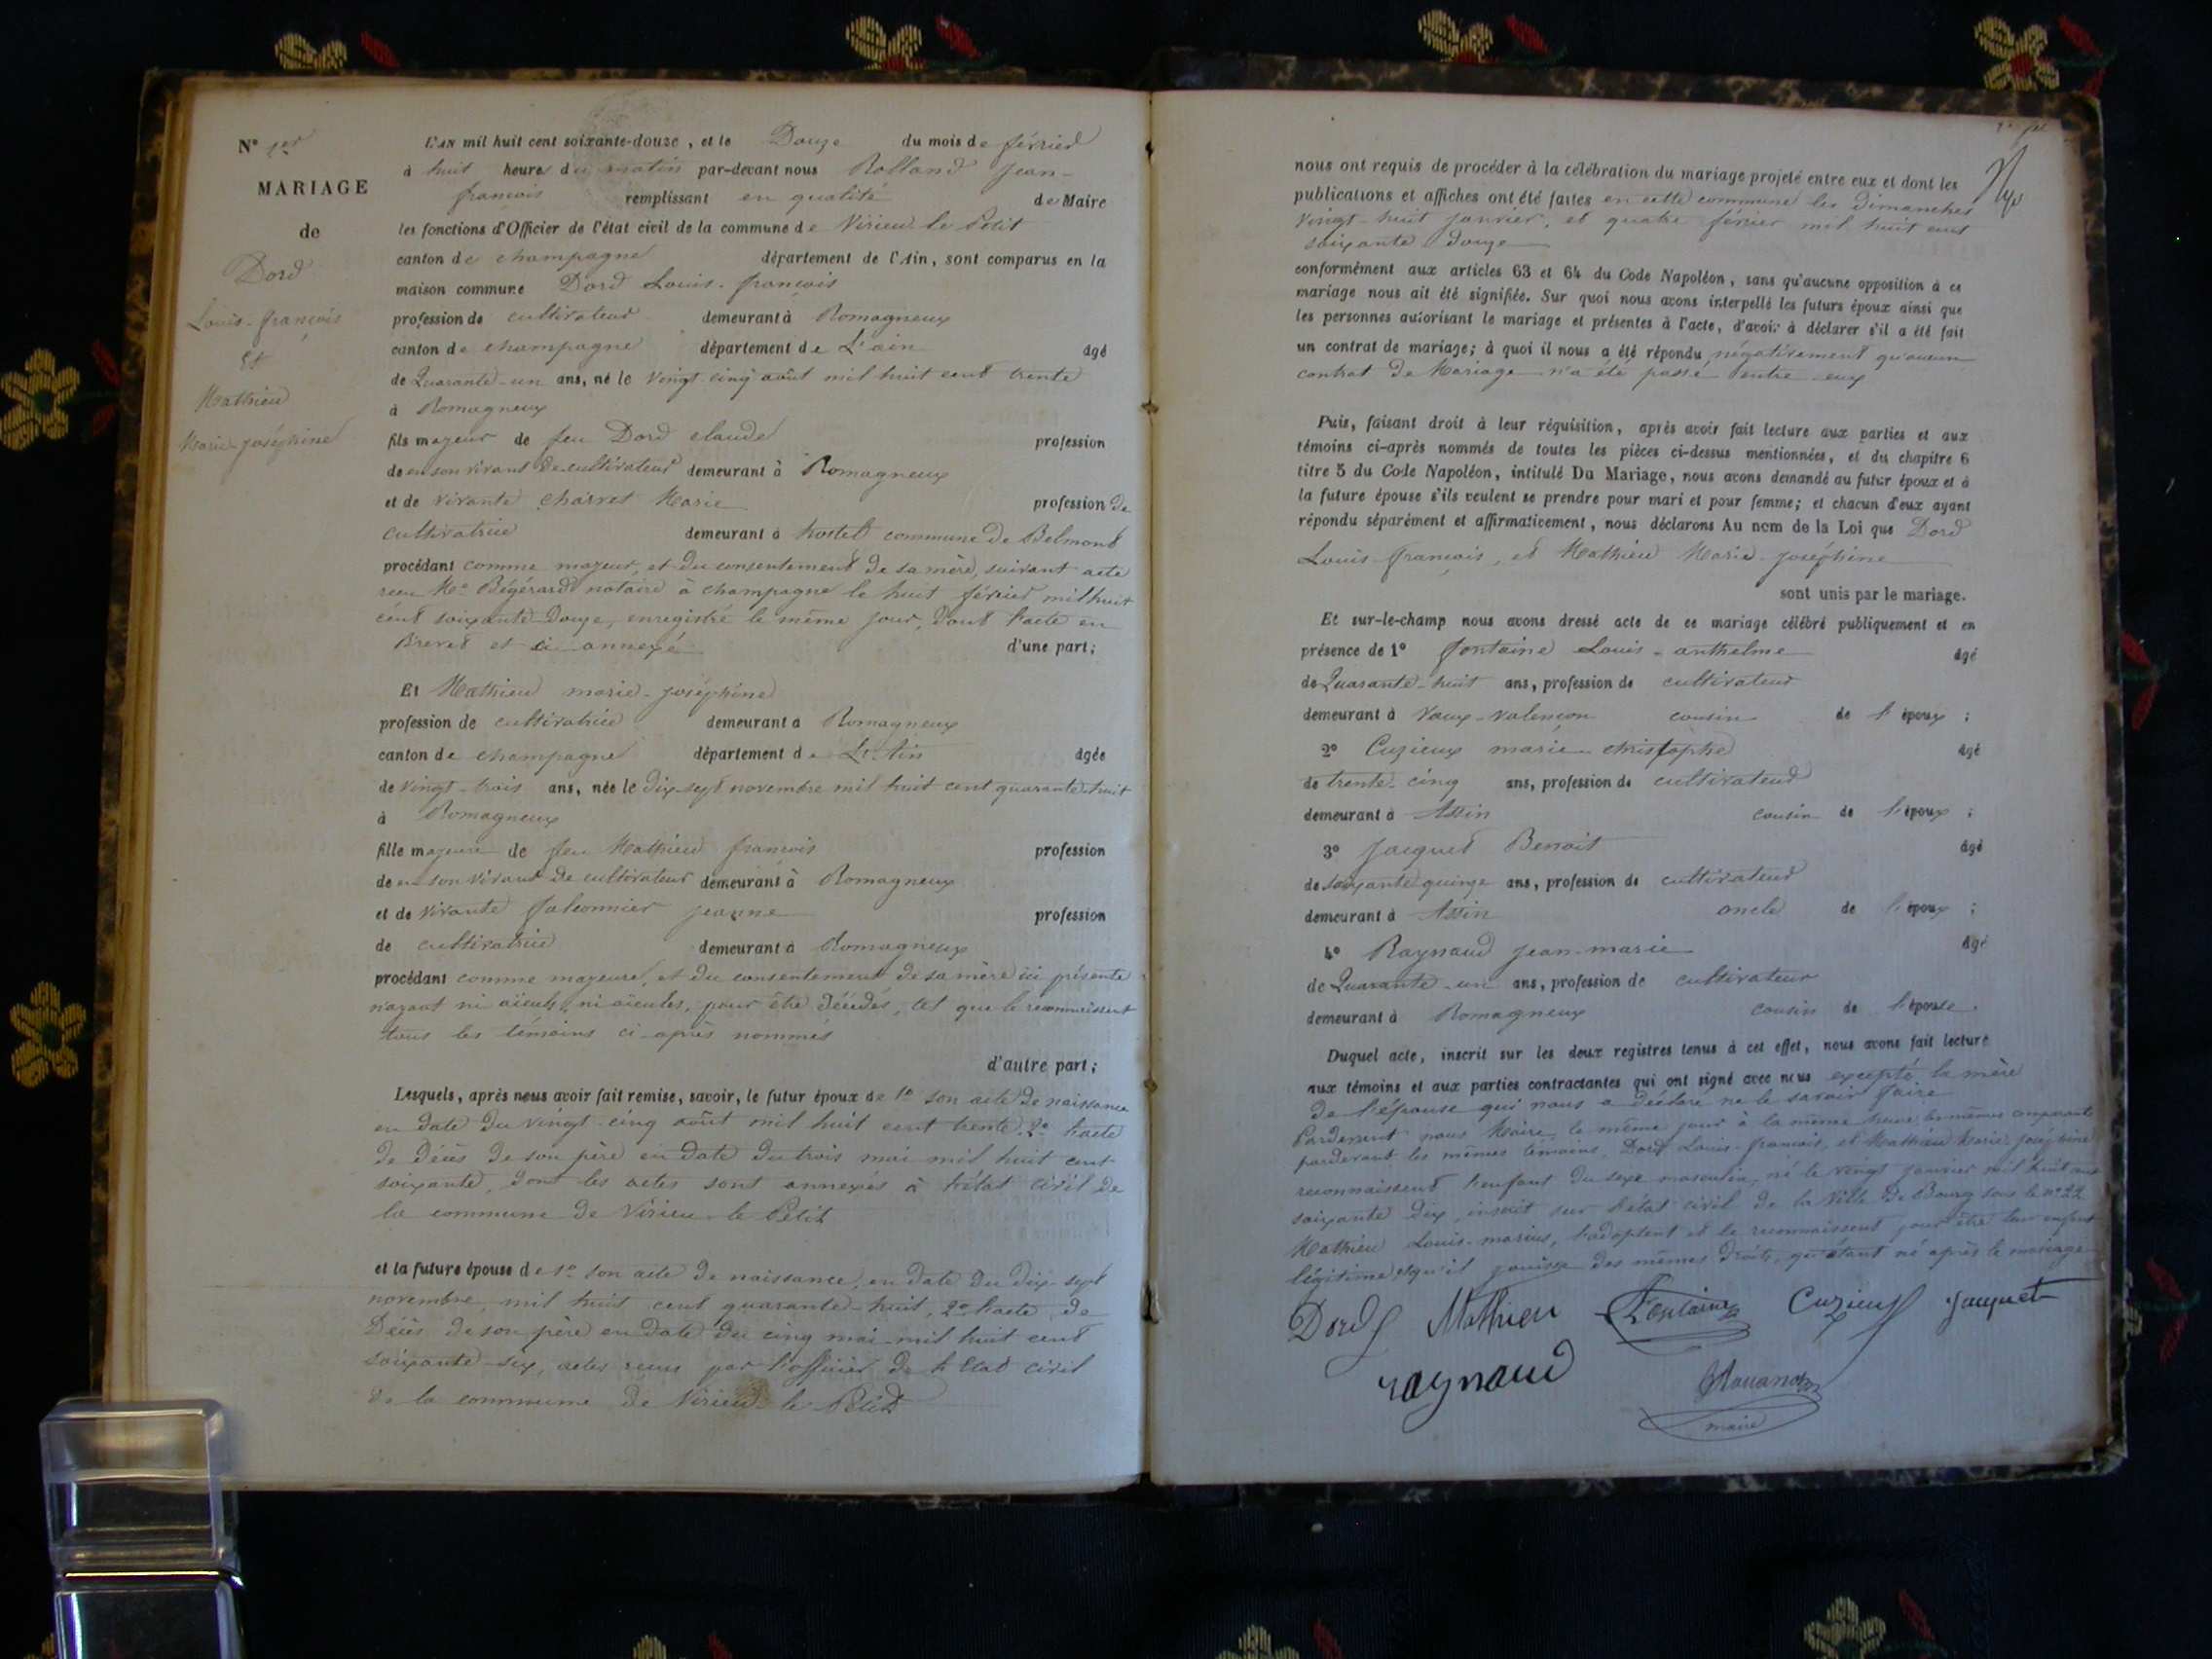 N° 1er
MARIAGE
de
Dord
Louis-françois
Et
Mathieu
Marie-joséphine
L'AN mil huit cent soixante-douze, et le Douze du mois de février
à huit heures du matin par-devant nous Rolland jean-
françois remplissant en qualité de Maire
les fonctions d'Officier de l'état civil de la commune de Virieu le Petit
canton de champagne département de l'Ain, sont comparus en la
maison commune Dord Louis-françois
profession de cultivateur demeurant à Romagneux
canton de champagne département de L'ain âgé
de Quarante-un ans, né le vingt cinq août mil huit cent trente
à Romagneux
fils majeur de feu Dord claude profession
de en son vivant de cultivateur demeurant à Romagneux
et de vivante charvet Marie profession de
cultivatrice demeurant à hostel commune de Belmont
procédant comme majeur, et du consentement de sa mère, suivant acte
reçu Me Bégérard notaire à champagne le huit février mil huit
cent soixante Douze, enregistré le même jour, dont l'acte en
Brevet et ci annexé d'une part;
Et Mathieu marie-joséphine
profession de cultivatrice demeurant à Romagneux
canton de champagne département de L'Ain âgée
de vingt-trois ans, née le dix-sept novembre mil huit cent quarante-huit
à Romagneux
fille majeure de feu Mathieu françois profession
de en son vivant de cultivateur demeurant à Romagneux
et de vivante falconnier jeanne profession
de cultivatrice demeurant à Romagneux
procédant comme majeure, et du consentement de sa mère ici présente
n'ayant ni aïeuls, ni aïeules, pour être décédés, tel que le reconnaissent
tous les témoins ci-après nommés
d'autre part;
Lesquels, après nous avoir fait remise, savoir, le futur époux de 1° son acte de naissance
en date du vingt-cinq août mil huit cent trente, 2° l'acte
de décès de son père en date du trois mai mil huit cent
soixante, dont les actes sont annexés à l'état civil de
la commune de Virieu le Petit
et la future épouse de 1° son acte de naissance, en date du dix-sept
novembre, mil huit cent quarante-huit, 2° l'acte de
Décès de son père en date du cinq mai mil huit cent
soixante-six, actes reçus par l'officier de l'Etat civil
de la commune de Virieu le Petit
nous ont requis de procéder à la célébration du mariage projeté entre eux et dont les
publications et affiches ont été faites en cette commune les dimanches
vingt-huit janvier, et quatre février mil huit cent
soixante douze
conformément aux articles 63 et 64 du Code Napoléon, sans qu'aucune opposition à ce
mariage nous ait été signifiée. Sur quoi nous avons interpellé les futurs époux ainsi que
les personnes autorisant le mariage et présentes à l'acte, d'avoir à déclarer s'il a été fait
un contrat de mariage; à quoi il nous a été répondu négativement qu'aucun
contrat de Mariage n'a été passé entre eux
Puis, faisant droit à leur réquisition, après avoir fait lecture aux parties et aux
témoins ci-après nommés de toutes les pièces ci-dessus mentionnées, et du chapitre 6
titre 5 du Code Napoléon, intitulé Du Mariage, nous avons demandé au futur époux et à
la future épouse s'ils veulent se prendre pour mari et pour femme; et chacun d'eux ayant
répondu séparément et affirmativement, nous déclarons Au nom de la Loi que Dord
Louis-françois, et Mathieu Marie-joséphine
sont unis par le mariage.
Et sur-le-champ nous avons dressé acte de ce mariage célébré publiquement et en
présence de 1° fontaine Louis-anthelme âgé
de Quarante-huit ans, profession de cultivateur
demeurant à Vaux-valençon cousin de l'époux;
2° Cuzieux marie-christophe âgé
de trente-cinq ans, profession de cultivateur
demeurant à Assin cousin de l'époux;
3° jacquet Benoit âgé
de soixante quinze ans, profession de cultivateur
demeurant à Assin oncle de l'époux;
4° Raynaud jean-marie âgé
de Quarante-un ans, profession de cultivateur
demeurant à Romagneux cousin de l'épouse
Duquel acte, inscrit sur les deux registres tenus à cet effet, nous avons fait lecture
aux témoins et aux parties contractantes qui ont signé avec nous excepté la mère
de l'épouse qui nous a déclaré ne le savoir faire
Pardevant nous Maire, le même jour à la même heure les mêmes comparants
pardevant les mêmes témoins, Dord Louis-françois, et Mathieu Marie joséphine
reconnaissent l'enfant du sexe masculin, né le vingt janvier mil huit cent
soixante dix, inscrit sur l'état civil de la Ville de Bourg sous le n° 22
Mathieu Louis-marius, l'adoptent et le reconnaissent pour être leur enfant
légitime, et qu'il jouisse des mêmes droits, qu'étant né après le mariage
Dord Mathieu Fontaine Cuzieux Jacquet
raynaud
maire